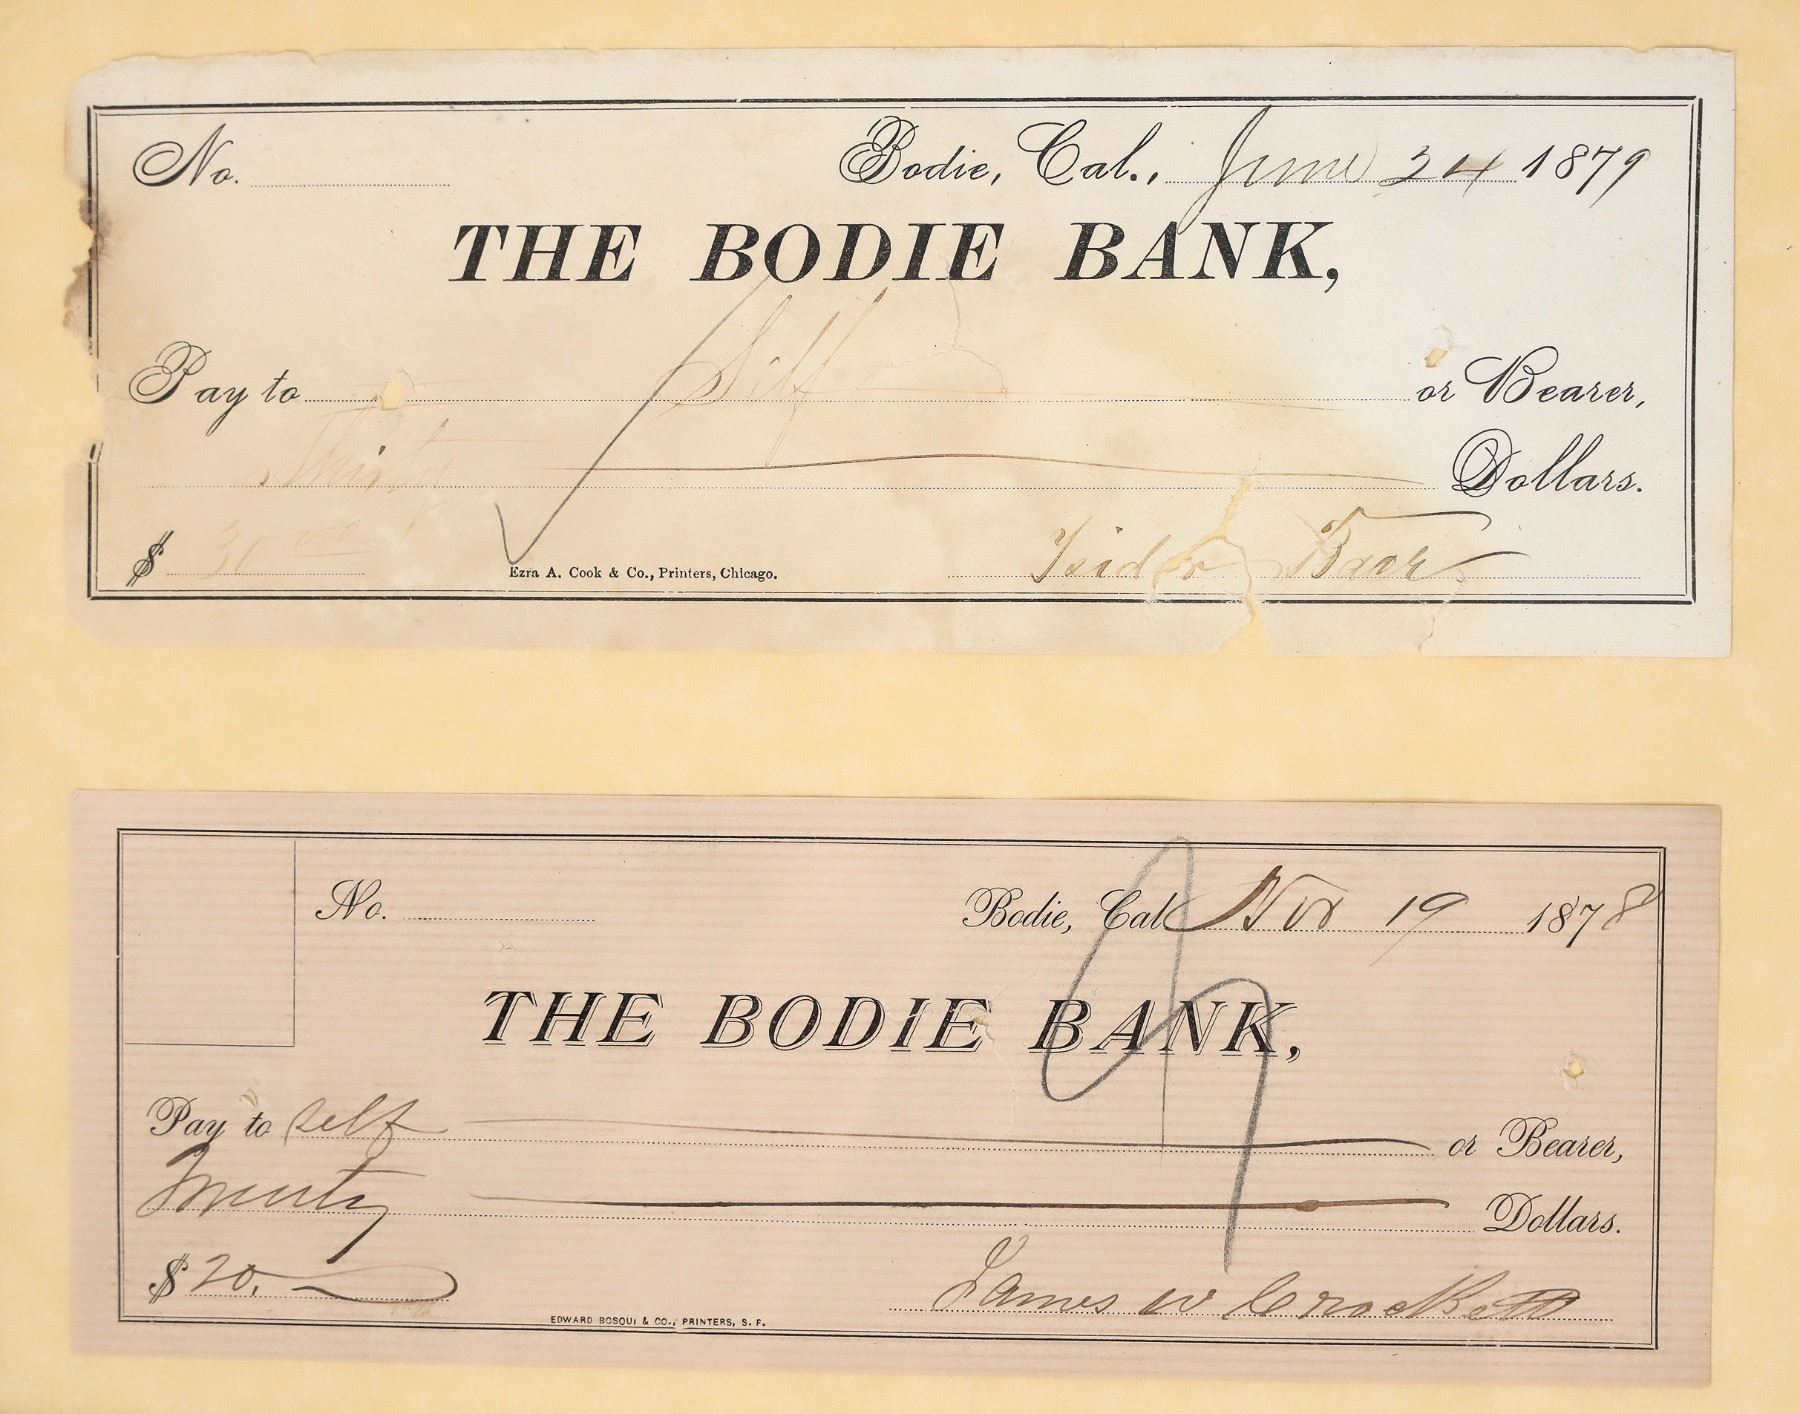 No. Bodie, Cal., June 24 1879
THE BODIE BANK,
Pay to Self or Bearer,
Thirty Dollars.
$ 30 00
Ezra A. Cook & Co., Printers, Chicago. Isidor Baer
No. Bodie, Cal Nov 19 1878
THE BODIE BANK,
Pay to self or Bearer,
Twenty Dollars.
$ 20.
EDWARD BOSQUI & CO., PRINTERS, S. F. James W Crockett